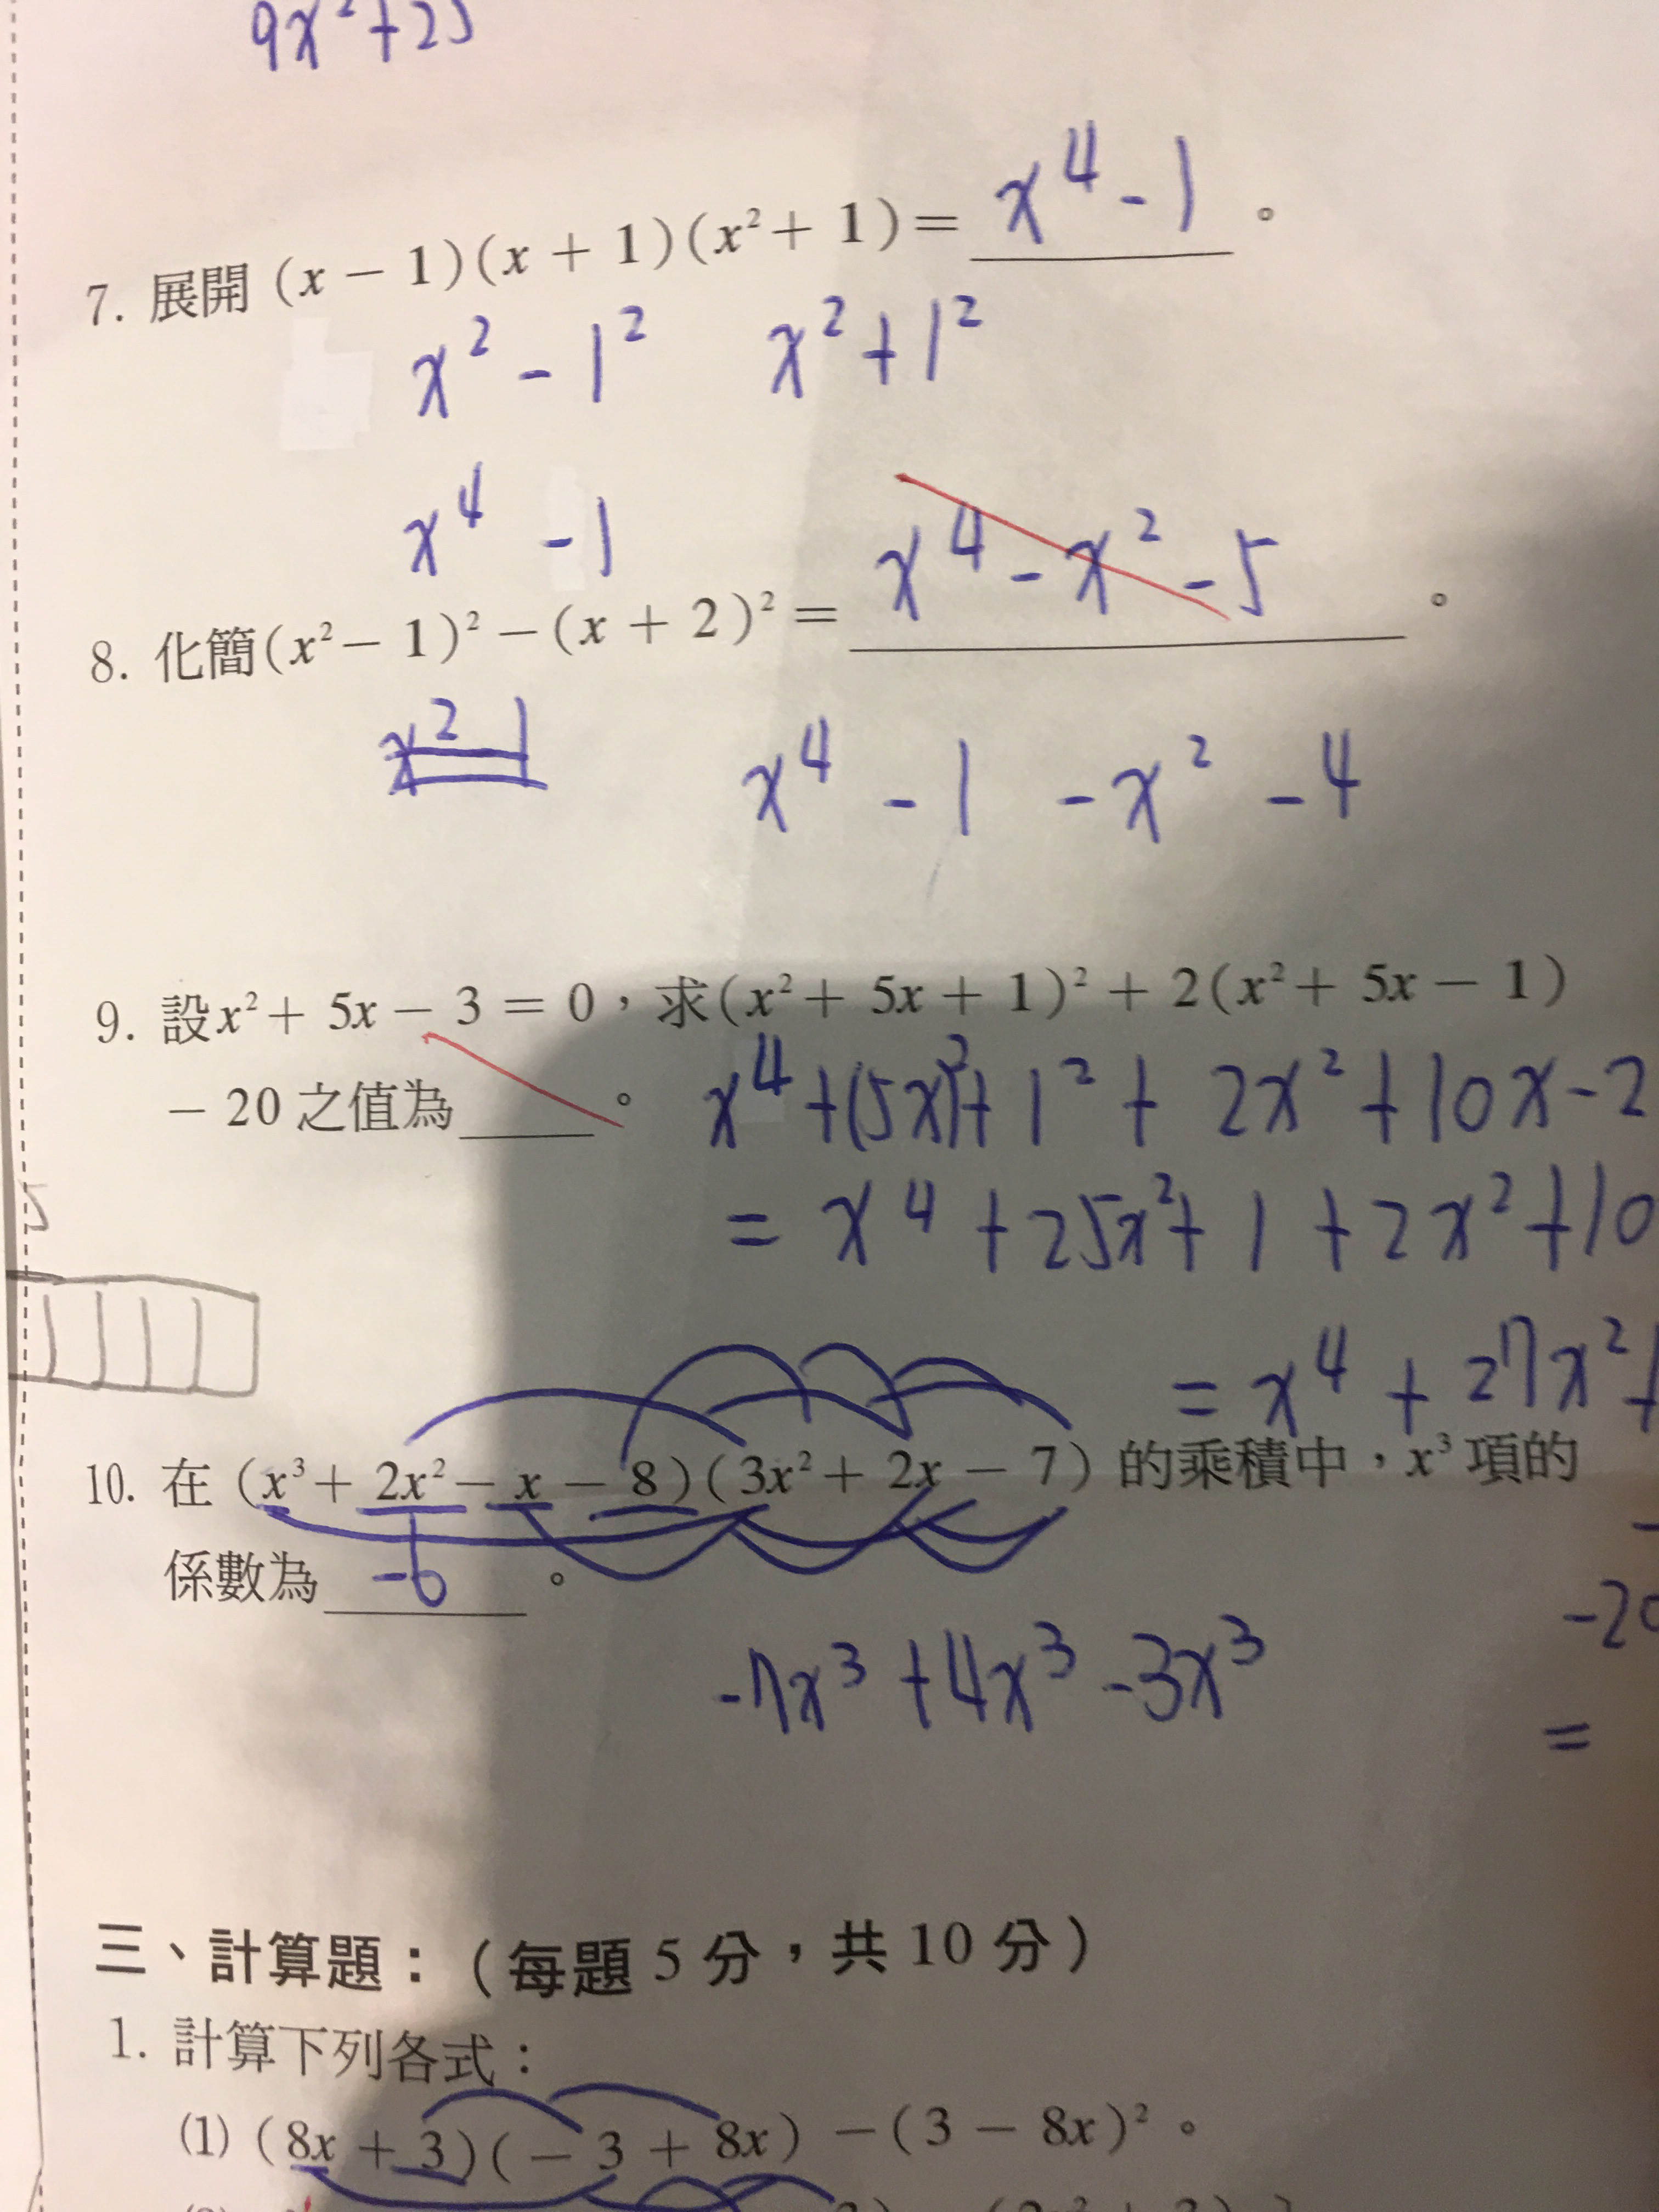 9x²+25
7. 展開 (x − 1)(x + 1)(x²+ 1)= x⁴ - 1 。
x² - 1² x² + 1²
x⁴ - 1
8. 化簡(x²− 1)²−(x + 2)²= x⁴ - x² - 5 。
x² 1 x⁴ - 1 - x² - 4
9. 設x²+ 5x − 3 = 0，求(x²+ 5x + 1)²+ 2(x²+ 5x − 1)
− 20 之值為 。 x⁴ +(5x)²+ 1² + 2x² + 10x - 2
= x⁴ + 25x²+ 1 + 2x² + 10
5
= x⁴ + 27x² +
10. 在 (x³+ 2x²− x − 8)(3x²+ 2x − 7) 的乘積中，x³ 項的
係數為 -6 。
-20
-7x³ +4x³ -3x³
=
三、計算題：（每題 5 分，共 10 分）
1. 計算下列各式：
⑴ (8x + 3)(− 3 + 8x) −(3 − 8x)²。